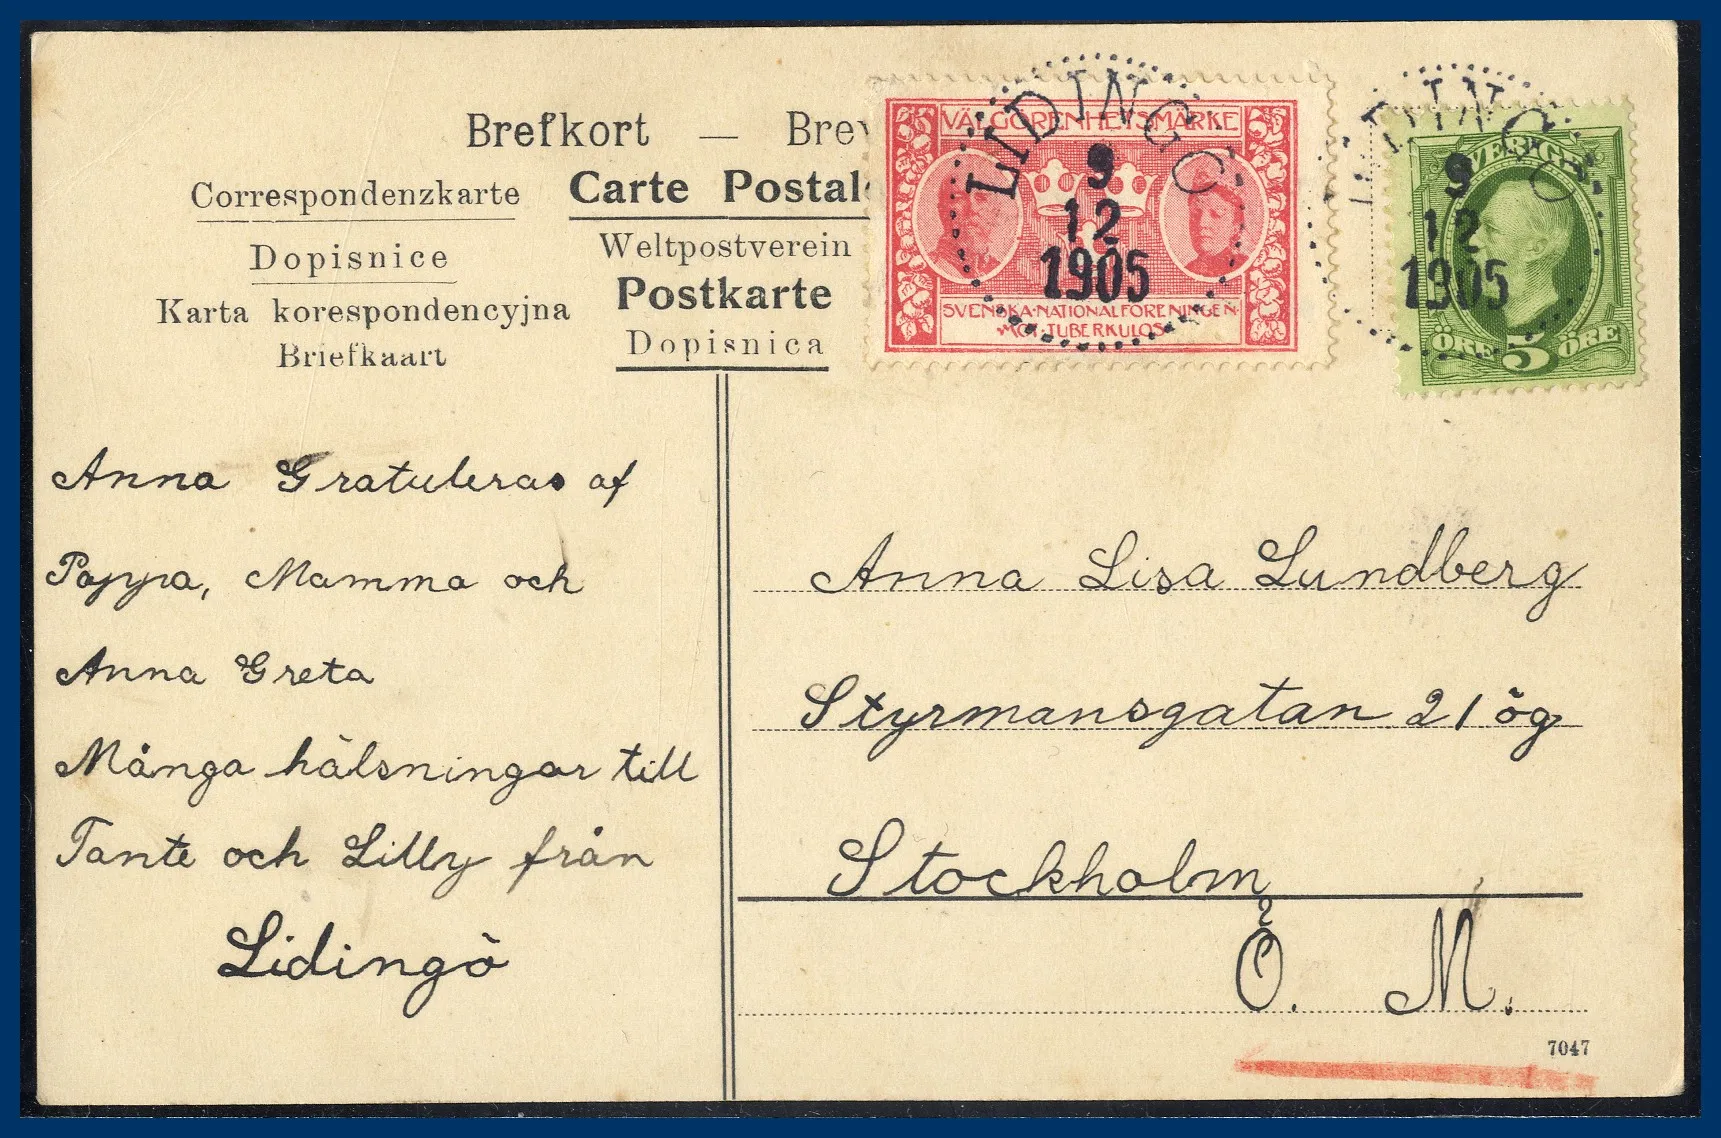 Brefkort —
Correspondenzkarte
Carte Postal
Dopisnice
Weltpostverein
Karta korespondencyjna
Postkarte
Briefkaart
Dopisnica
VÄLGÖRENHETSMÄRKE
SVENSKA·NATIONALFÖRENINGEN·
MOT·TUBERKULOS
LIDINGÖ
9
12
1905
SVERIGE
ÖRE 5 ÖRE
LIDINGÖ
9
12
1905
Anna Gratuleras af
Pappa, Mamma och
Anna Greta
Många hälsningar till
Tante och Lilly från
Lidingö
Anna Lisa Lundberg
Styrmansgatan 21 ög
Stockholm
Ö. M.
7047